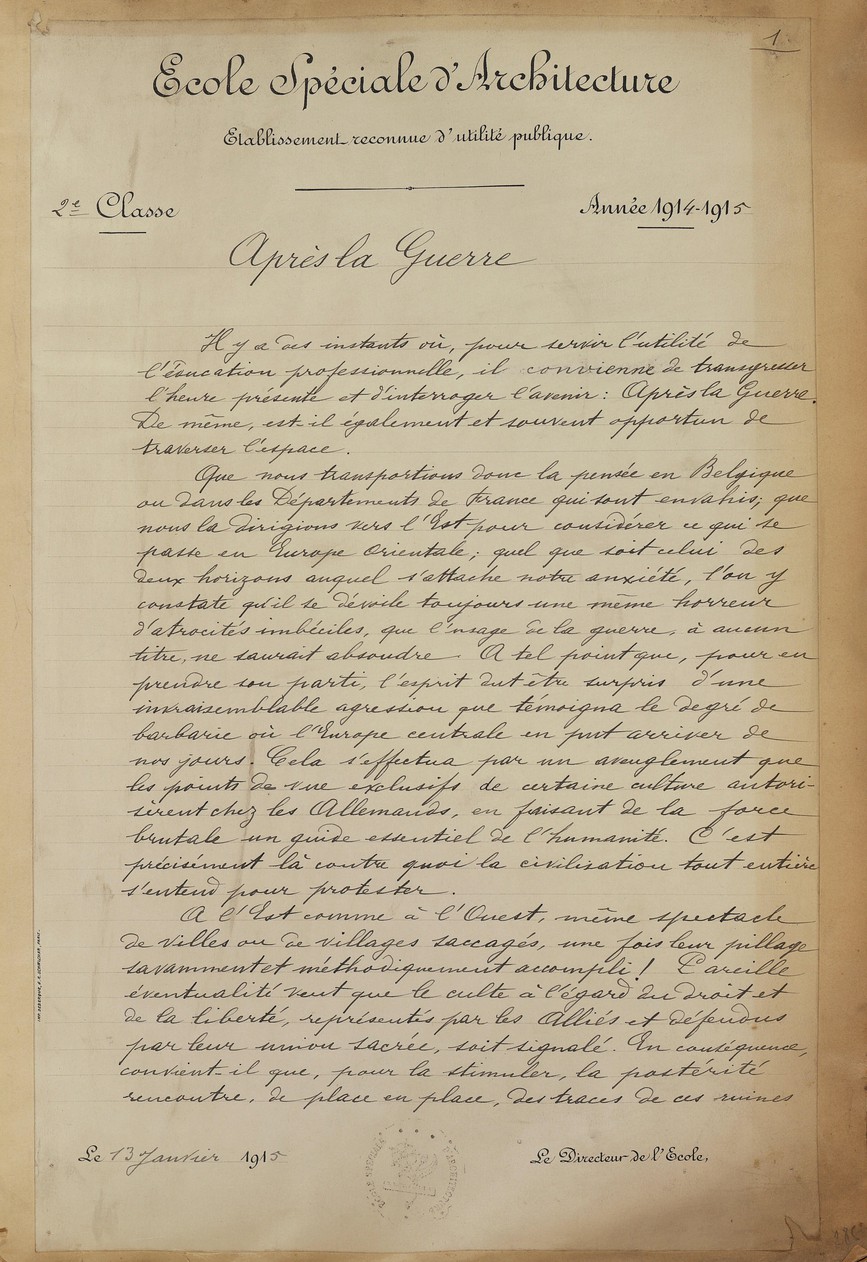 1
Ecole Spéciale d'Architecture
Etablissement reconnue d'utilité publique.
2e Classe
Année 1914-1915
Après la Guerre
Il y a des instants où, pour servir l'utilité de
l'éducation professionnelle, il convienne de transgresser
l'heure présente et d'interroger l'avenir : Après la Guerre.
De même, est-il également et souvent opportun de
traverser l'espace.
Que nous transportions donc la pensée en Belgique
ou dans les Départements de France qui sont envahis; que
nous la dirigions vers l'Est pour considérer ce qui se
passe en Europe Orientale; quel que soit celui des
deux horizons auquel s'attache notre anxiété, l'on y
constate qu'il se dévoile toujours une même horreur
d'atrocités imbéciles, que l'usage de la guerre, à aucun
titre, ne saurait absoudre. A tel point que, pour en
prendre son parti, l'esprit dut être surpris d'une
invraisemblable agression que témoigna le degré de
barbarie où l'Europe centrale en put arriver de
nos jours. Cela s'effectua par un aveuglement que
les points de vue exclusifs de certaine culture autori-
sèrent chez les Allemands, en faisant de la force
brutale un guide essentiel de l'humanité. C'est
précisément là contre quoi la civilization tout entière
s'entend pour protester.
A l'Est comme à l'Ouest, même spectacle
de villes ou de villages saccagés, une fois leur pillage
savamment et méthodiquement accompli! Pareille
éventualité veut que le culte à l'égard du droit et
de la liberté, représentés par les Alliés et défendus
par leur union sacrée, soit signalé. En conséquence,
convient-il que, pour la stimuler, la postérité
rencontre, de place en place, des traces de ces ruines
Le 13 Janvier 1915
Le Directeur de l'Ecole,